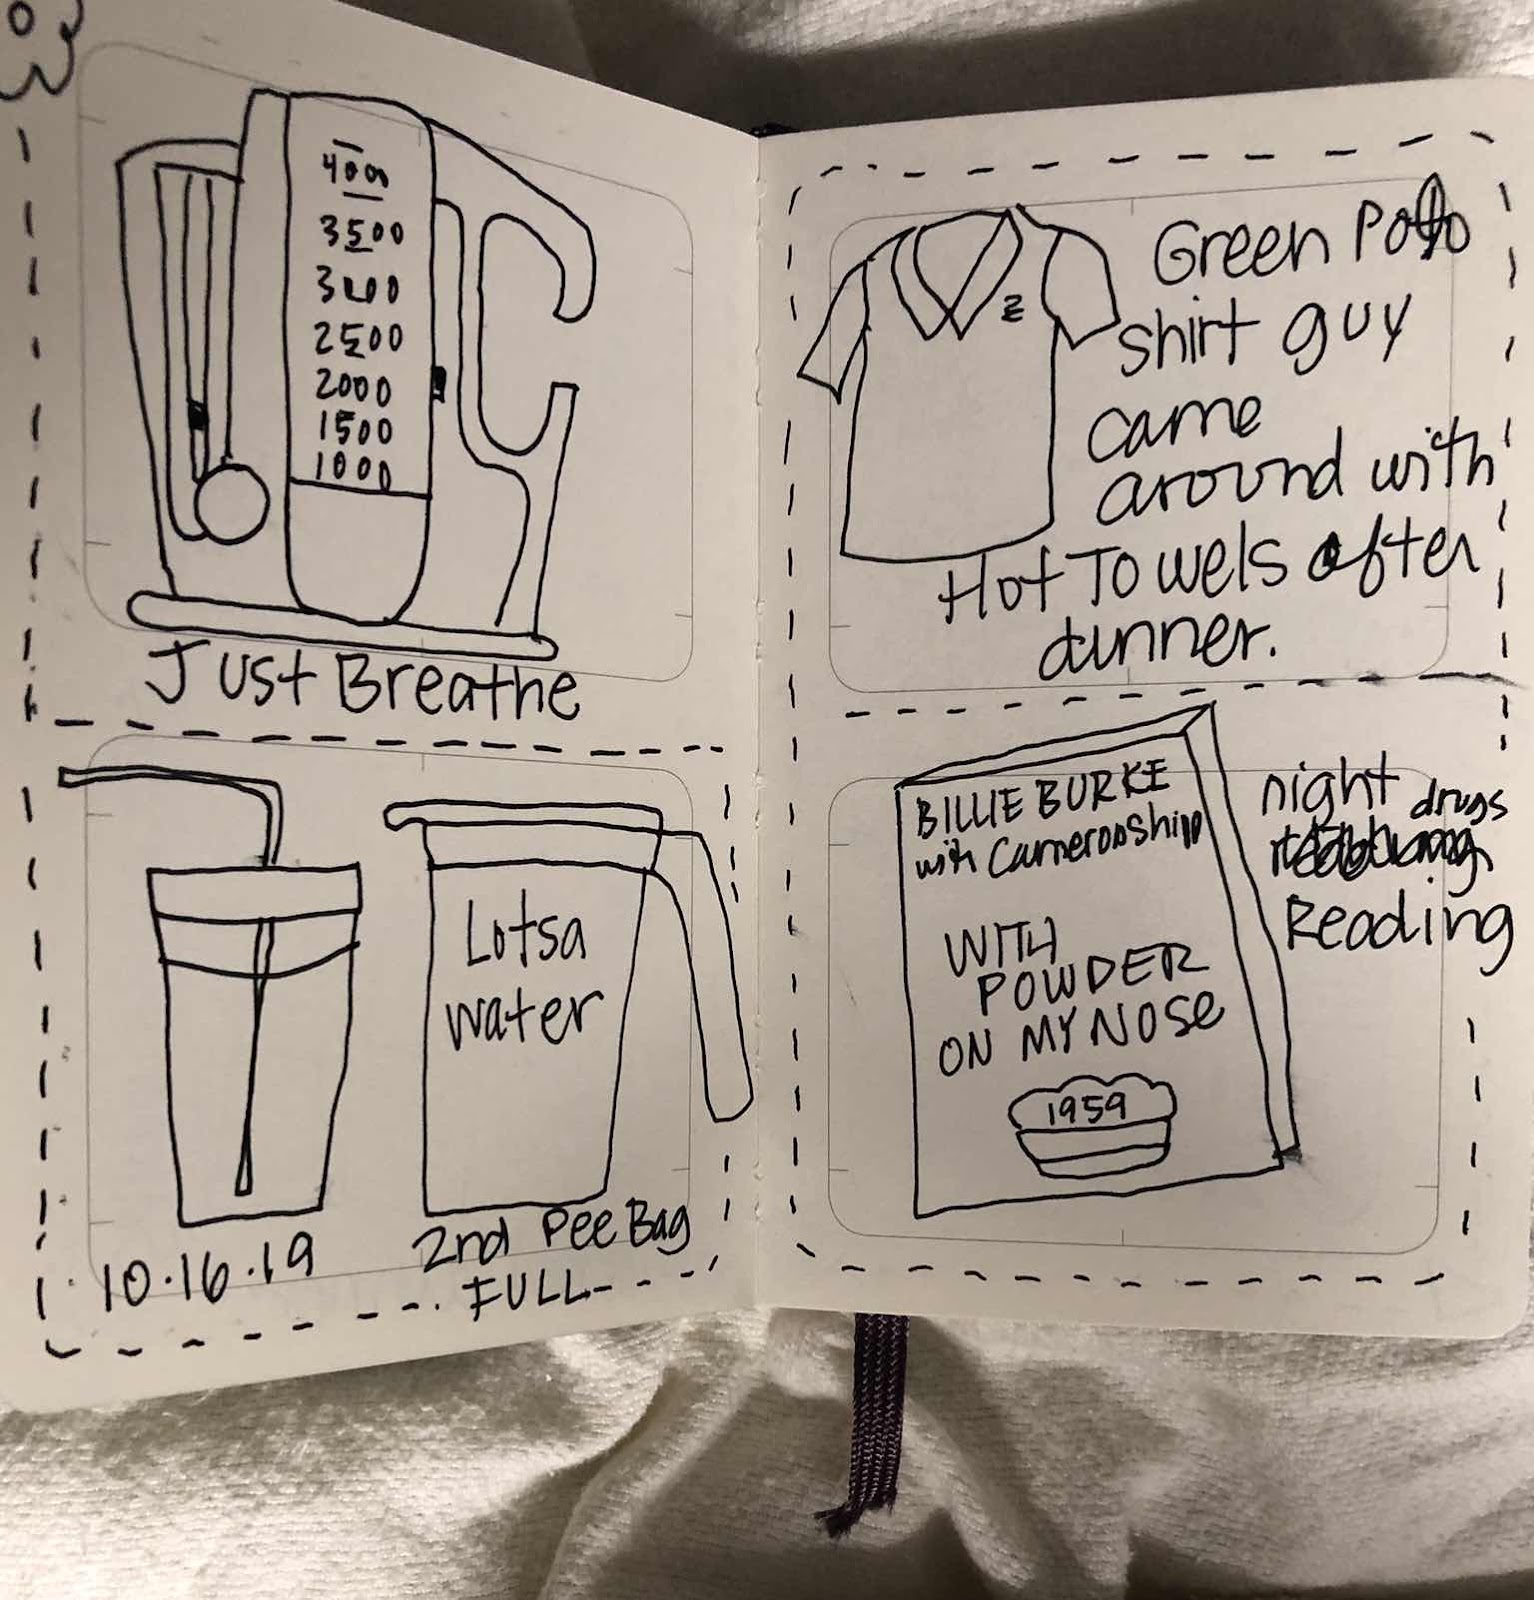 4000
3500
3000
2500
2000
1500
1000
Just Breathe
Lotsa
water
10.16.19
2nd Pee Bag
FULL
Green Polo
shirt guy
came
around with
Hot Towels after
dinner.
BILLIE BURKE
with Cameron Shipp
WITH
POWDER
ON MY NOSE
1959
night drugs
Reading